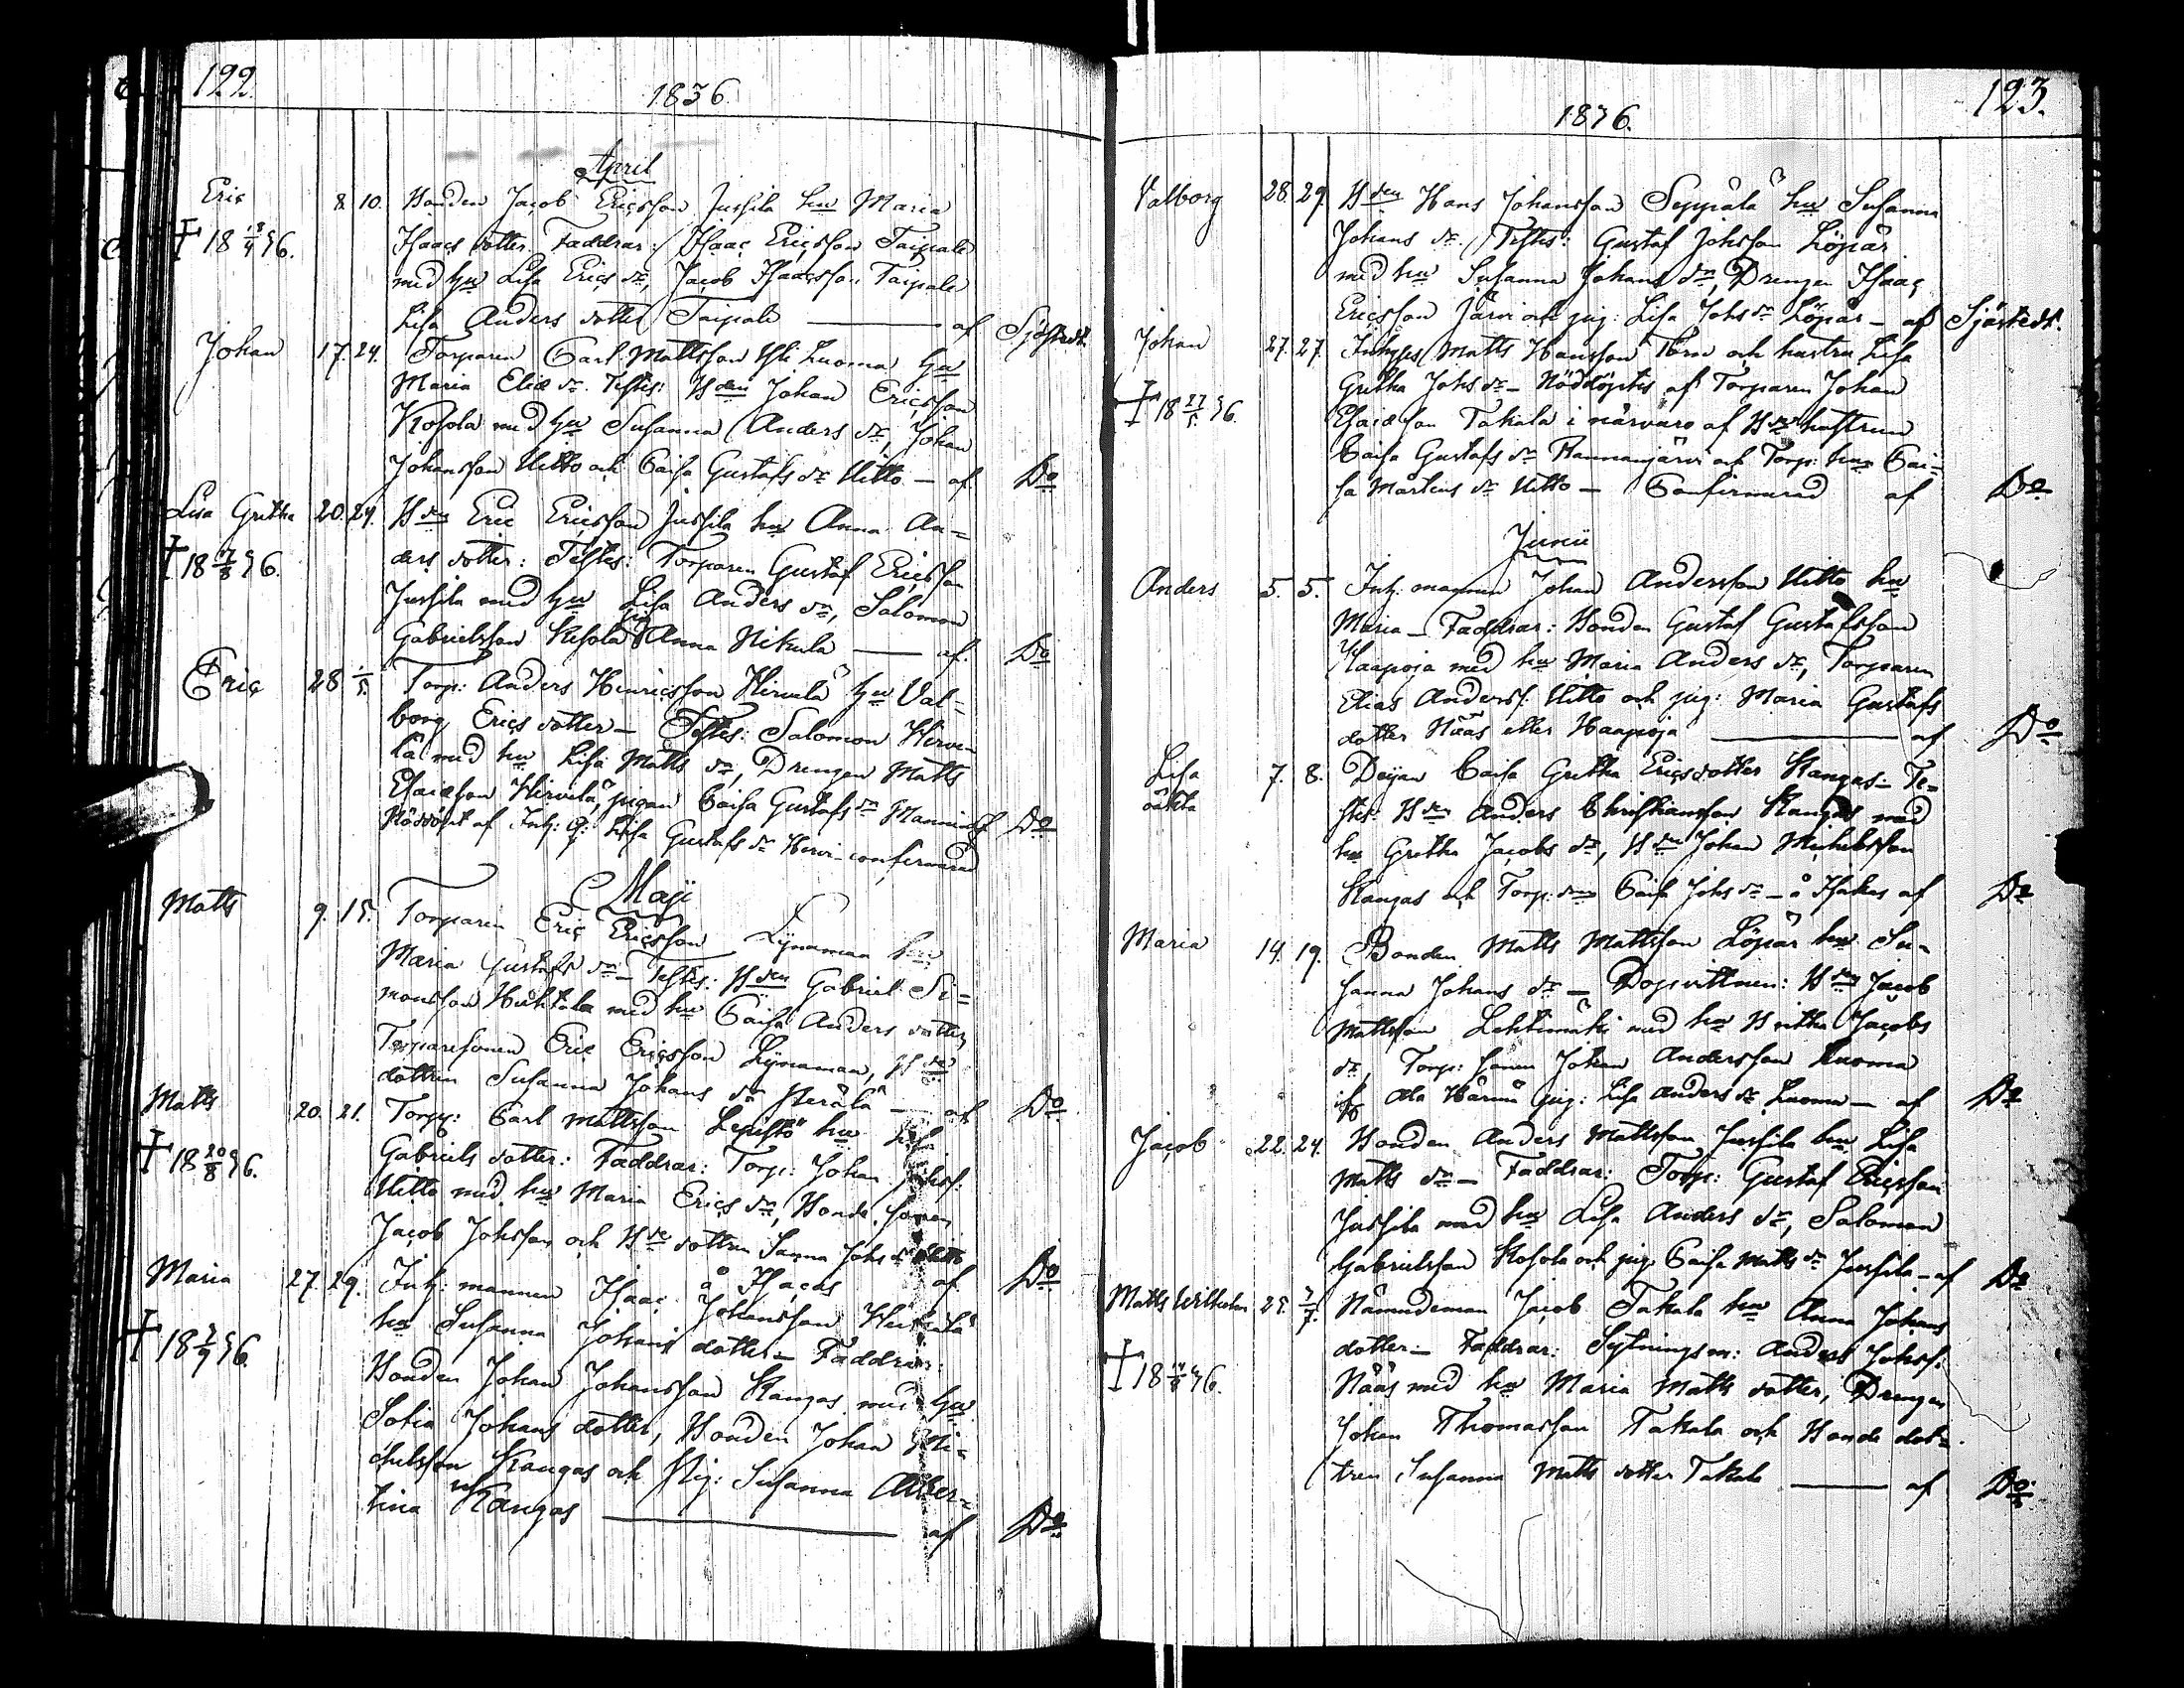 122.
1836.
April
Eric 8. 10. Bonden Jacob Ericsson Jussila hu Maria
† 18 18/4 36. Isaacs dotter. Faddrar: Isaac Ericsson Taipale
med hu Lisa Erics dr, Jacob Isaacsson Taipale
Lisa Anders dotter Taipale — af Sjöstedt.
Johan 17. 24. Torparen Carl Mattsson Yli Luoma hu
Maria Eliæ dr. Testes: Bden Johan Ericsson
Kosola med hu Susanna Anders dr, Johan
Johansson Uitto och Caisa Gustafs dr Uitto — af Do
Lisa Gretha 20. 24. Bden Eric Ericsson Jussila hu Anna An=
† 18 7/8 36. ders dotter: Testes: Torparen Gustaf Ericsson
Jussila med hu Lisa Anders dr, Salomon
Gabrielsson Kosola pig Anna Nikula — af. Do
Eric 28 1/5. Torp: Anders Henricsson Hirvelä hu Val=
borg Erics dotter — Testes: Salomon Hirve
lä med hu Lisa Matts dr, Drengen Matts
Esaiæson Hirvelä, pigan Caisa Gustafs dr
Nöddöpt af Inh: q: Lisa Gustafs dr confirmerad Do
Maji
Matts 9. 15. Torparen Eric Ericsson Lynaman hu
Maria Gustafs dr — Testes: Bden Gabriel Si=
monsson Huhtala med hu Caisa Anders dotter
Torparesonen Eric Ericsson Lynaman, Bde
dottren Susanna Johans dr — af Do
Matts 20. 21. Torp: Carl Mattsson Lepistö hu Lisa
† 18 20/8 36. Gabriels dotter: Faddrar: Torp: Johan Johsf:
Uitto med hu Maria Erics dr, Bonde sonen
Jacob Johsson och Bde dottren Sanna Johs dr Uitto
å Isacas af Do
Maria 27. 29. Inh: mannen Isaac Johansson
† 18 7/9 36. hu Susanna Johans dotter — Faddrar:
Bonden Johan Johansson Kangas med hu
Sofia Johans dotter, Bonden Johan Mi=
chelsson Kangas och pig: Susanna Alber=
tina Kangas — af Do
123.
1836.
Valborg 28. 29. Bden Hans Johansson Seppälä hu Susanna
Johans dr. Testes: Gustaf Johsson Löpär
med hu Susanna Johans dr, Drengen Isaac
Ericsson Järvi och pig: Lisa Johs dr Löpär — af Sjöstedt.
Johan 27. 27. Inhyses Matts Hansson och hustru Lisa
† 18 27/5. 36. Gretha Johs dr — Nöddöptes af Torparen Johan
Esaiæson Takala i närvaro af Bde hustrun
Caisa Gustafs dr Rannanjärvi och Torp: hu Cai=
sa Mårtens dr Uitto — Confirmerad af Do
Junii
Anders 5. 5. Inh: mannen Johan Andersson Uitto hu
Maria — Faddrar: Bonden Gustaf Gustafsson
Haapoja med hu Maria Anders dr, Torparen
Elias Andersf. Uitto och pig: Maria Gustafs
dotter Näas eller Haapoja — af Do
Lisa 7. 8. Deijan Caisa Gretha Ericsdotter Kangas — Te=
oäkta stes: Bden Anders Christiansson Kangas med
hu Gretha Jacobs dr, Bden Johan Michelsson
Kangas och Torp: Caisa Johs dr — å Isakas af Do
Maria 14. 19. Bonden Matts Mattsson Löpär hu Su=
sanna Johans dr — Dopvittnen: Bden Jacob
Mattsson Lehtimäki med hu Britha Jacobs
dr, Torp: sonen Johan Andersson Luoma
Ala Härmä pig: Lisa Anders dr Luoma — af Do
Jacob 22. 24. Bonden Anders Mattsson Jussila hu Lisa
Matts dr — Faddrar: Torp: Gustaf Ericsson
Jussila med hu Lisa Anders dr, Salomon
Gabrielsson Kosola och pig: Caisa Matts dr Jussila — af Do
Matts Wilhelm 25. 2/7. Nämndeman Jacob Takala hu Anna Johans
† 18 36. dotter — Faddrar: Sytningsm: Anders Johsf:
Nääs med hu Maria Matts dotter, Drengen
Johan Thomasson Takala och Bonde dot=
tren Susanna Matts dotter Takala — af Do